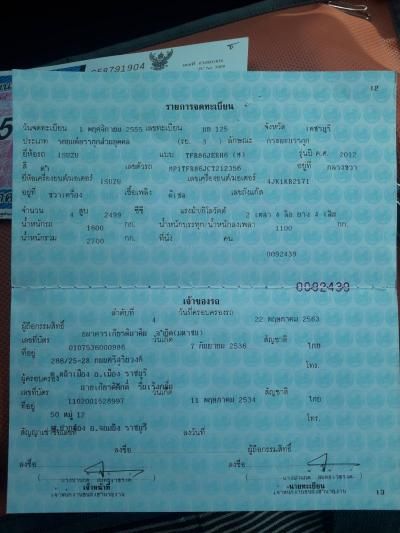 058791904
12
รายการจดทะเบียน
วันจดทะเบียน 1 พฤศจิกายน 2555 เลขทะเบียน บห 125 จังหวัด เพชรบุรี
ประเภท รถยนต์บรรทุกส่วนบุคคล (รย. 3 ) ลักษณะ กระบะบรรทุก
ยี่ห้อรถ ISUZU แบบ TFR86JERH6 (M) รุ่นปี ค.ศ. 2012
สี ดำ เลขตัวรถ MP1TFR86JCT212356 อยู่ที่ กลางขวา
ยี่ห้อเครื่องยนต์/มอเตอร์ ISUZU เลขเครื่องยนต์/มอเตอร์ 4JK1KB2171
อยู่ที่ ขวาเครื่อง เชื้อเพลิง ดีเซล เลขถังแก๊ส
จำนวน 4 สูบ 2499 ซีซี แรงม้า/กิโลวัตต์ 2 เพลา 4 ล้อ ยาง 4 เส้น
น้ำหนักรถ 1600 กก. น้ำหนักบรรทุก/น้ำหนักลงเพลา 1100 กก.
น้ำหนักรวม 2700 กก. ที่นั่ง คน
0092439
0092439
เจ้าของรถ
ลำดับที่ 4 วันที่ครอบครองรถ 22 พฤษภาคม 2563
ผู้ถือกรรมสิทธิ์ ธนาคารเกียรตินาคิน จำกัด(มหาชน)
เลขที่บัตร 0107536000986 วันเกิด 7 กันยายน 2536 สัญชาติ ไทย
ที่อยู่ 286/25-28 ถนนศรีสุริยวงศ์ โทร.
ต.หน้าเมือง อ.เมือง ราชบุรี
ผู้ครอบครอง นายเกียรติศักดิ์
เลขที่บัตร 1102001528997 วันเกิด 11 พฤษภาคม 2534 สัญชาติ ไทย
ที่อยู่ 50 หมู่ 12 โทร.
อ.จอมบึง ราชบุรี
สัญญาเช่าซื้อเลขที่ ลงวันที่
ลงชื่อ ผู้ถือกรรมสิทธิ์
ลงชื่อ ลงชื่อ
เจ้าหน้าที่ นายทะเบียน
13